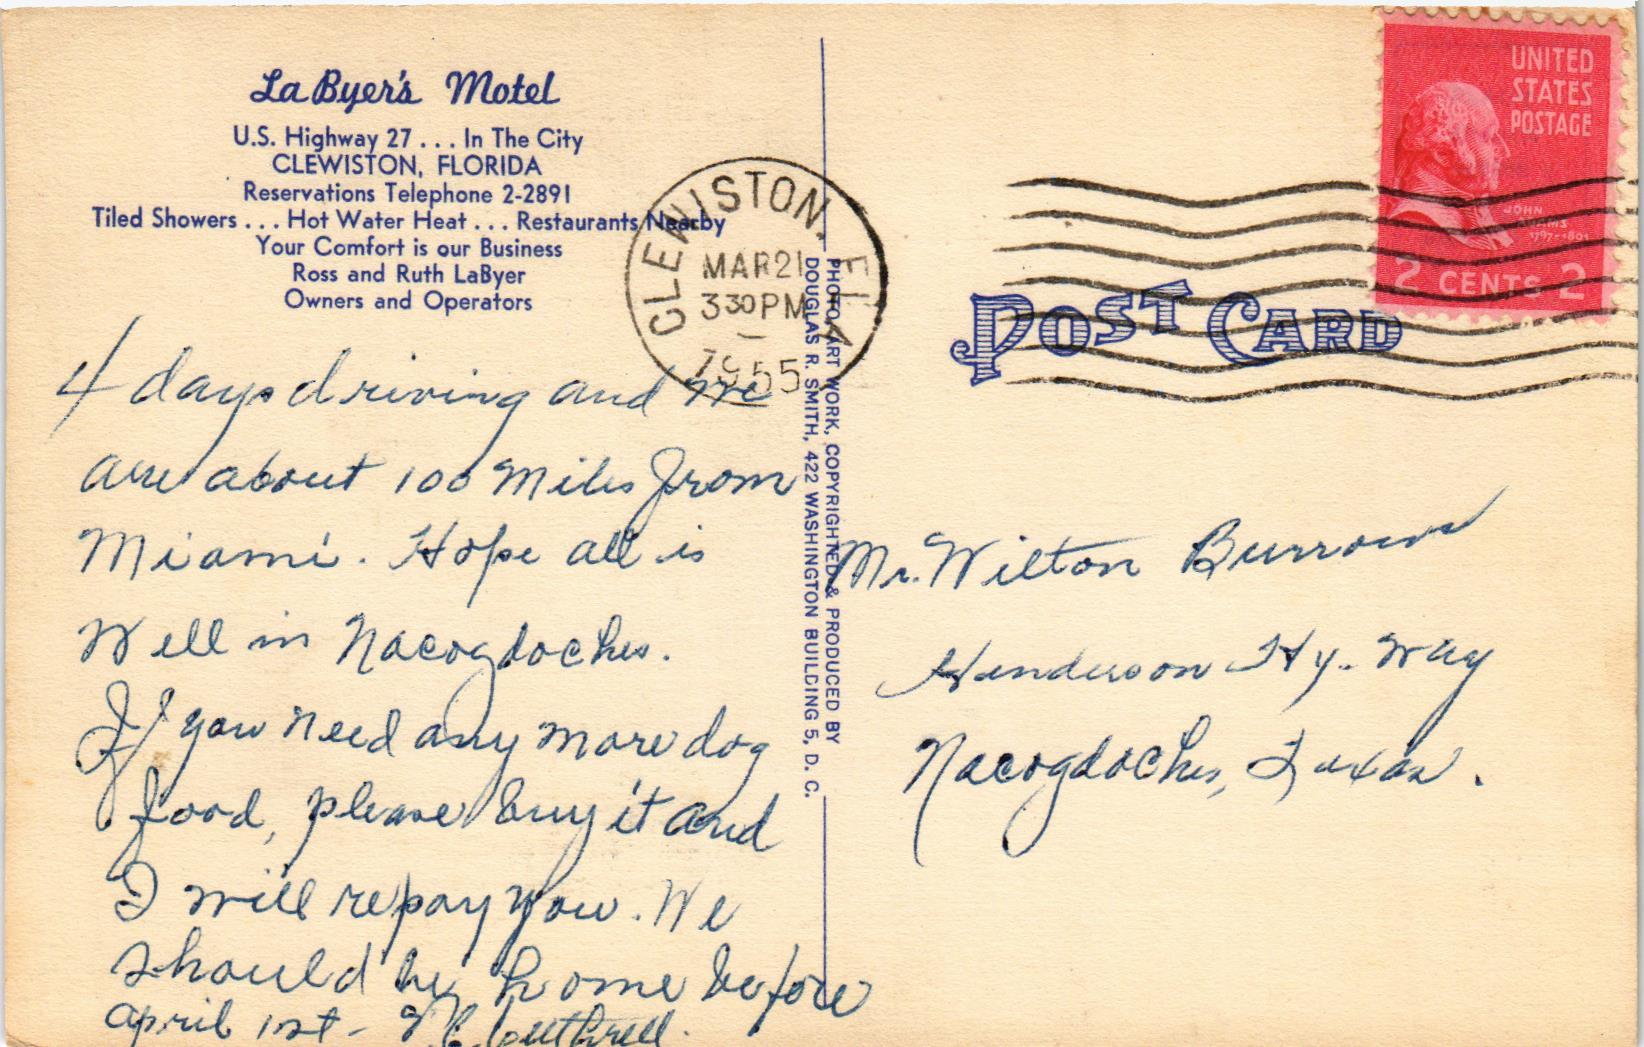 La Byer's Motel
U.S. Highway 27 ... In The City
CLEWISTON, FLORIDA
Reservations Telephone 2-2891
Tiled Showers ... Hot Water Heat ... Restaurants Nearby
Your Comfort is our Business
Ross and Ruth LaByer
Owners and Operators
4 days driving and we
are about 100 Miles from
Miami. Hope all is
Well in Nacogdoches.
If you need any more dog
food, please buy it and
I will repay you. We
should be home before
april 1st -
CLEWISTON, FLA
MAR 21
330 PM
1955
PHOTO, ART WORK, COPYRIGHTED & PRODUCED BY
DOUGLAS R. SMITH, 422 WASHINGTON BUILDING 5, D. C.
UNITED
STATES
POSTAGE
JOHN
ADAMS
1797-1801
2 CENTS 2
POST CARD
Mr. Wilton Burrows
Henderson Hy. Way
Nacogdoches, Texas.